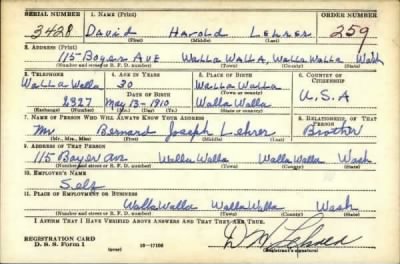 SERIAL NUMBER 1. NAME (Print) ORDER NUMBER
3428 David Harold Lehrer 259
(First) (Middle) (Last)
2. ADDRESS (Print)
115 Boyer Ave Walla Walla, Walla Walla Wash
(Number and street or R. F. D. number) (Town) (County) (State)
3. TELEPHONE 4. AGE IN YEARS 5. PLACE OF BIRTH 6. COUNTRY OF CITIZENSHIP
Walla Walla 30 Walla Walla
DATE OF BIRTH (Town or county)
2327 May 13-1910 Walla Walla U.S.A
(Exchange) (Number) (Mo.) (Day) (Yr.) (State or country)
7. NAME OF PERSON WHO WILL ALWAYS KNOW YOUR ADDRESS 8. RELATIONSHIP OF THAT PERSON
Mr Bernard Joseph Lehrer Brother
(Mr., Mrs., Miss) (First) (Middle) (Last)
9. ADDRESS OF THAT PERSON
115 Boyer Ave Walla Walla Walla Walla Wash.
(Number and street or R. F. D. number) (Town) (County) (State)
10. EMPLOYER'S NAME
Self
11. PLACE OF EMPLOYMENT OR BUSINESS
Walla Walla Walla Walla Wash
(Number and street or R. F. D. number) (Town) (County) (State)
I AFFIRM THAT I HAVE VERIFIED ABOVE ANSWERS AND THAT THEY ARE TRUE.
REGISTRATION CARD
D. S. S. Form 1 (over) 16-17105 (Registrant's signature)